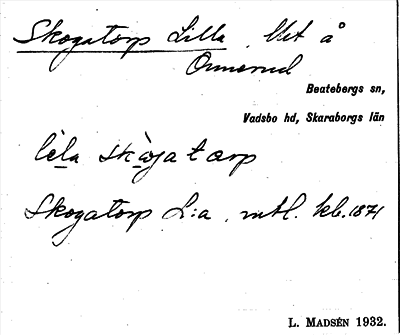 Skogatorp Lilla, lht å
Onnerud
Beatebergs sn,
Vadsbo hd, Skaraborgs län
lìla skòga tårp
Skogatorp L:a, mtl. kb. 1871
L. MADSÉN 1932.